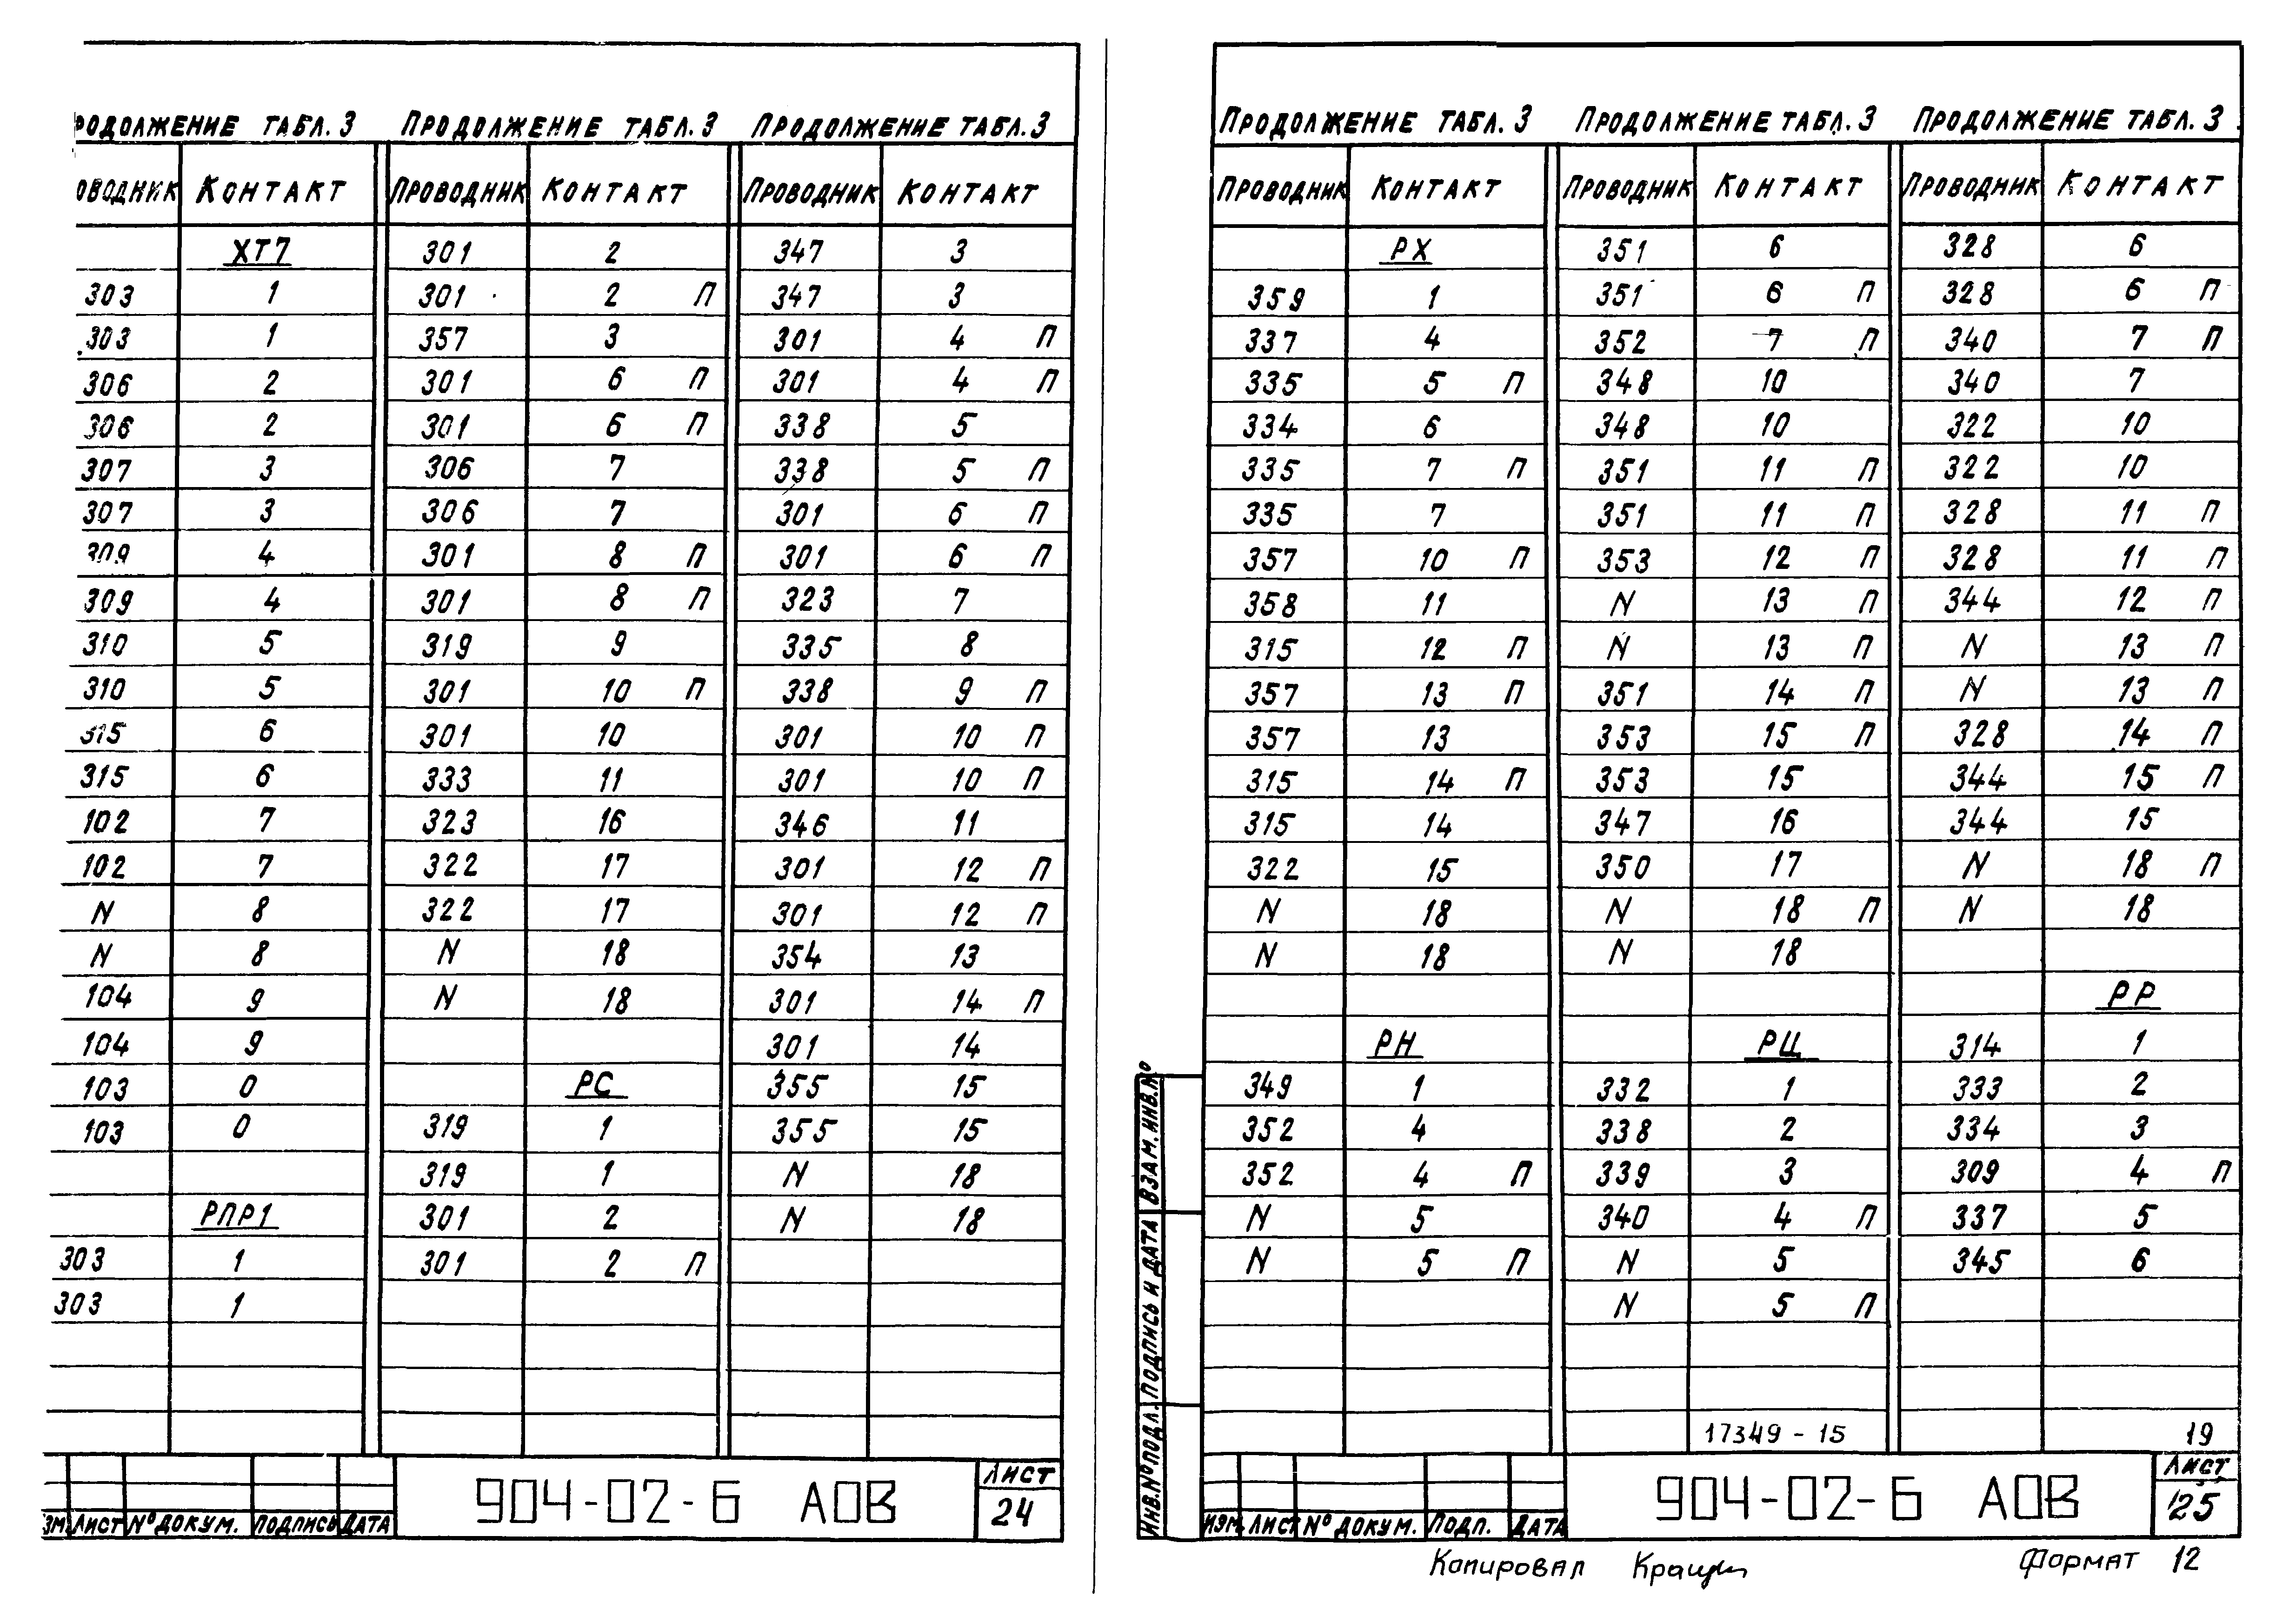 РОДОЛЖЕНИЕ ТАБЛ. 3 ПРОДОЛЖЕНИЕ ТАБЛ. 3 ПРОДОЛЖЕНИЕ ТАБЛ. 3
ОВОДНИК КОНТАКТ ПРОВОДНИК КОНТАКТ ПРОВОДНИК КОНТАКТ
ХТ7 301 2 347 3
303 1 301 2 П 347 3
303 1 357 3 301 4 П
306 2 301 6 П 301 4 П
306 2 301 6 П 338 5
307 3 306 7 338 5 П
307 3 306 7 301 6 П
309 4 301 8 П 301 6 П
309 4 301 8 П 323 7
310 5 319 9 335 8
310 5 301 10 П 338 9 П
315 6 301 10 301 10 П
315 6 333 11 301 10 П
102 7 323 16 346 11
102 7 322 17 301 12 П
N 8 322 17 301 12 П
N 8 N 18 354 13
104 9 N 18 301 14 П
104 9 301 14
103 0 РС 355 15
103 0 319 1 355 15
319 1 N 18
РПР1 301 2 N 18
303 1 301 2 П
303 1
ЗМ. ЛИСТ № ДОКУМ. ПОДПИСЬ ДАТА
904-02-6 АОВ
ЛИСТ
24
ПРОДОЛЖЕНИЕ ТАБЛ. 3 ПРОДОЛЖЕНИЕ ТАБЛ. 3 ПРОДОЛЖЕНИЕ ТАБЛ. 3
ПРОВОДНИК КОНТАКТ ПРОВОДНИК КОНТАКТ ПРОВОДНИК КОНТАКТ
РХ 351 6 328 6
359 1 351 6 П 328 6 П
337 4 352 7 П 340 7 П
335 5 П 348 10 340 7
334 6 348 10 322 10
335 7 П 351 11 П 322 10
335 7 351 11 П 328 11 П
357 10 П 353 12 П 328 11 П
358 11 N 13 П 344 12 П
315 12 П N 13 П N 13 П
357 13 П 351 14 П N 13 П
357 13 353 15 П 328 14 П
315 14 П 353 15 344 15 П
315 14 347 16 344 15
322 15 350 17 N 18 П
N 18 N 18 П N 18
N 18 N 18
РР
РН РЦ 314 1
349 1 332 1 333 2
352 4 338 2 334 3
352 4 П 339 3 309 4 П
N 5 340 4 П 337 5
N 5 П N 5 345 6
N 5 П
17349 - 15 19
ИНВ.№ ПОДЛ. ПОДПИСЬ И ДАТА ВЗАМ. ИНВ. №
ИЗМ. ЛИСТ № ДОКУМ. ПОДП. ДАТА
904-02-6 АОВ
ЛИСТ
25
Копировал Формат 12